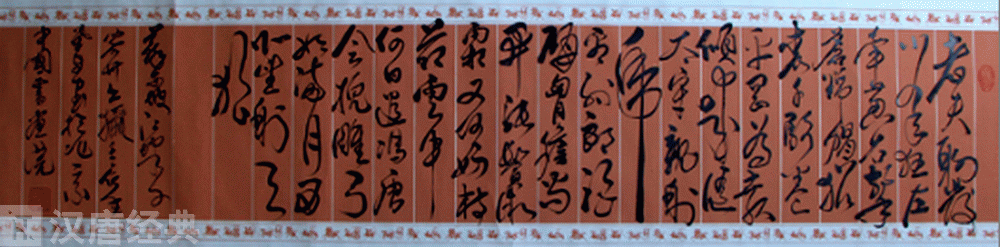 老夫聊发
少年狂左
牵黄右擎
苍锦帽貂
裘千骑卷
平冈为报
倾城随
太守亲射
虎
看孙郎酒
酣胸胆尚
开张鬓微
霜又何妨持
节云中
何日遣冯唐
会挽雕弓
如满月西
北望射天
狼
中国书画院
汉唐经典